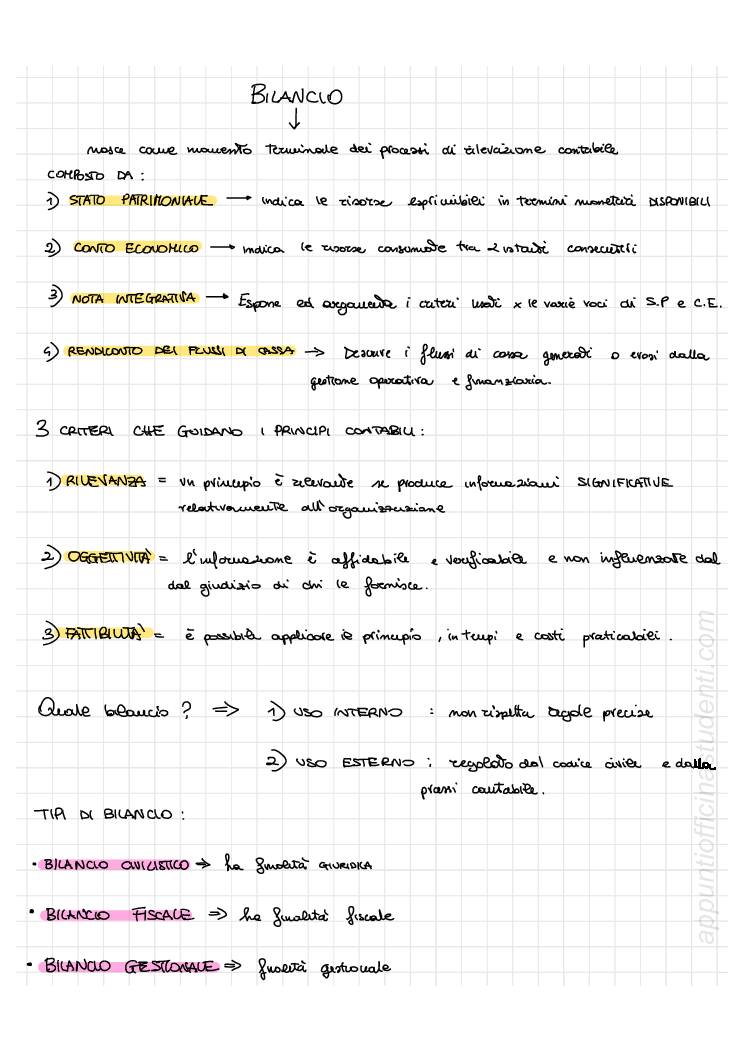 BILANCIO
↓
nasce come momento terminale dei processi di rilevazione contabile
COMPOSTO DA :
1) STATO PATRIMONIALE → indica le risorse esprimibili in termini monetari DISPONIBILI
2) CONTO ECONOMICO → indica le risorse consumate tra 2 istanti consecutivi
3) NOTA INTEGRATIVA → Espone ed argomenta i criteri usati x le varie voci di S.P e C.E.
4) RENDICONTO DEI FLUSSI DI CASSA → Descrive i flussi di cassa generati o erosi dalla
gestione operativa e finanziaria.
3 CRITERI CHE GUIDANO I PRINCIPI CONTABILI :
1) RILEVANZA = un principio è rilevante se produce informazioni SIGNIFICATIVE
relativamente all'organizzazione
2) OGGETTIVITÀ = l'informazione è affidabile e verificabile e non influenzate dal
dal giudizio di chi le fornisce.
3) FATTIBILITÀ = è possibile applicare il principio , in tempi e costi praticabili .
Quale bilancio ? ⇒ 1) USO INTERNO : non rispetta regole precise
2) USO ESTERNO : regolato dal codice civile e dalla
prassi contabile.
TIPI DI BILANCIO :
• BILANCIO CIVILISTICO → ha finalità GIURIDICA
• BILANCIO FISCALE ⇒ ha finalità fiscale
• BILANCIO GESTIONALE ⇒ finalità gestionale
appuntiofficinastudenti.com